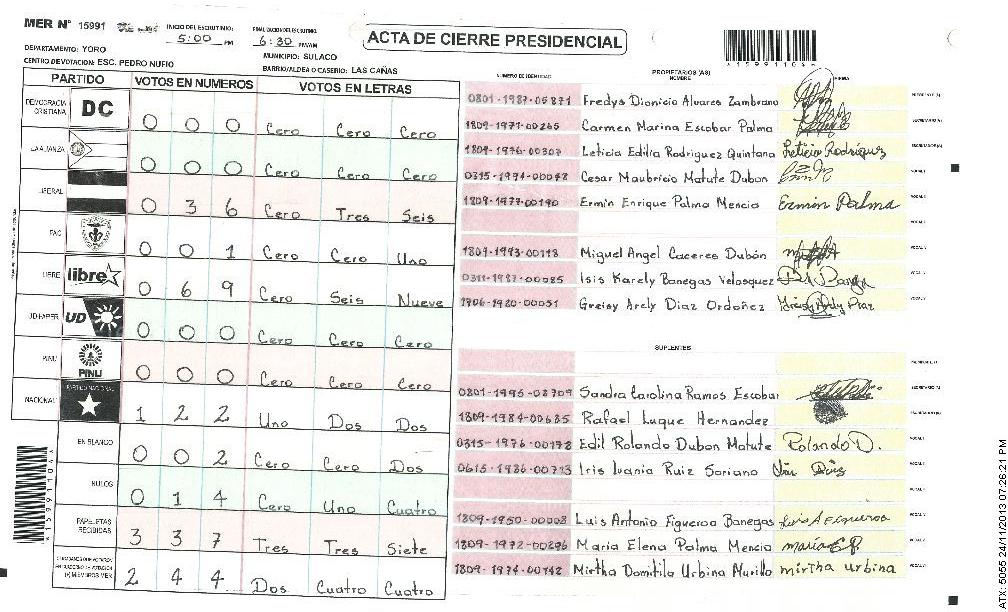 MER N° 15991
INICIO DEL ESCRUTINIO: 5:00 PM
FINALIZACION DEL ESCRUTINIO: 6:30 PM/AM
ACTA DE CIERRE PRESIDENCIAL
*15991104*
DEPARTAMENTO: YORO
MUNICIPIO: SULACO
CENTRO DE VOTACION: ESC. PEDRO NUFIO
BARRIO/ALDEA O CASERIO: LAS CAÑAS
PARTIDO VOTOS EN NUMEROS VOTOS EN LETRAS
DEMOCRACIA CRISTIANA DC 0 0 0 Cero Cero Cero
LA ALIANZA 0 0 0 Cero Cero Cero
LIBERAL 0 3 6 Cero Tres Seis
PAC 0 0 1 Cero Cero Uno
LIBRE libre 0 6 9 Cero Seis Nueve
UD-FAPER UD 0 0 0 Cero Cero Cero
PINU PINU 0 0 0 Cero Cero Cero
NACIONAL PARTIDO NACIONAL 1 2 2 Uno Dos Dos
EN BLANCO 0 0 2 Cero Cero Dos
NULOS 0 1 4 Cero Uno Cuatro
PAPELETAS RECIBIDAS 3 3 7 Tres Tres Siete
2 4 4 Dos Cuatro Cuatro
NUMERO DE IDENTIDAD PROPIETARIOS (AS) NOMBRE FIRMA
0801-1987-05871 Fredys Dionicio Alvares Zambrano
1809-1971-00265 Carmen Marina Escobar Palma
1809-1976-00307 Leticia Edilia Rodriguez Quintana Leticia Rodríguez
0315-1974-00048 Cesar Maubricio Matute Dubon
1809-1977-00190 Ermin Enrique Palma Mencia Ermin Palma
1804-1993-00118 Miguel Angel Caceres Dubón
0311-1987-00085 Isis Karely Banegas Velasquez
1906-1980-00051 Greisy Arely Diaz Ordoñez
SUPLENTES
0801-1995-08709 Sandra Carolina Ramos Escobar
1809-1984-00685 Rafael Luque Hernandez
0315-1976-00178 Edil Rolando Dubon Matute Rolando D.
0615-1986-00713 Iris Ivania Ruiz Soriano
1809-1950-00008 Luis Antonio Figueroa Banegas Luis A Figueroa
1809-1972-00296 Maria Elena Palma Mencia maria E P.
1809-1974-00142 Mirtha Domitila Urbina Murillo mirtha urbina
ATX: 5055 24/11/2013 07:26:21 PM